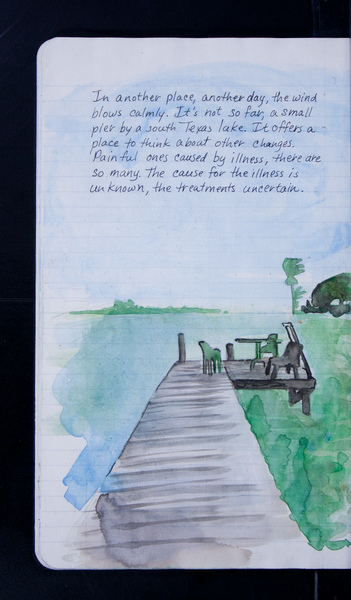 In another place, another day, the wind
blows calmly. It's not so far, a small
pier by a south Texas lake. It offers a
place to think about other changes.
Painful ones caused by illness, there are
so many. The cause for the illness is
unknown, the treatments uncertain.